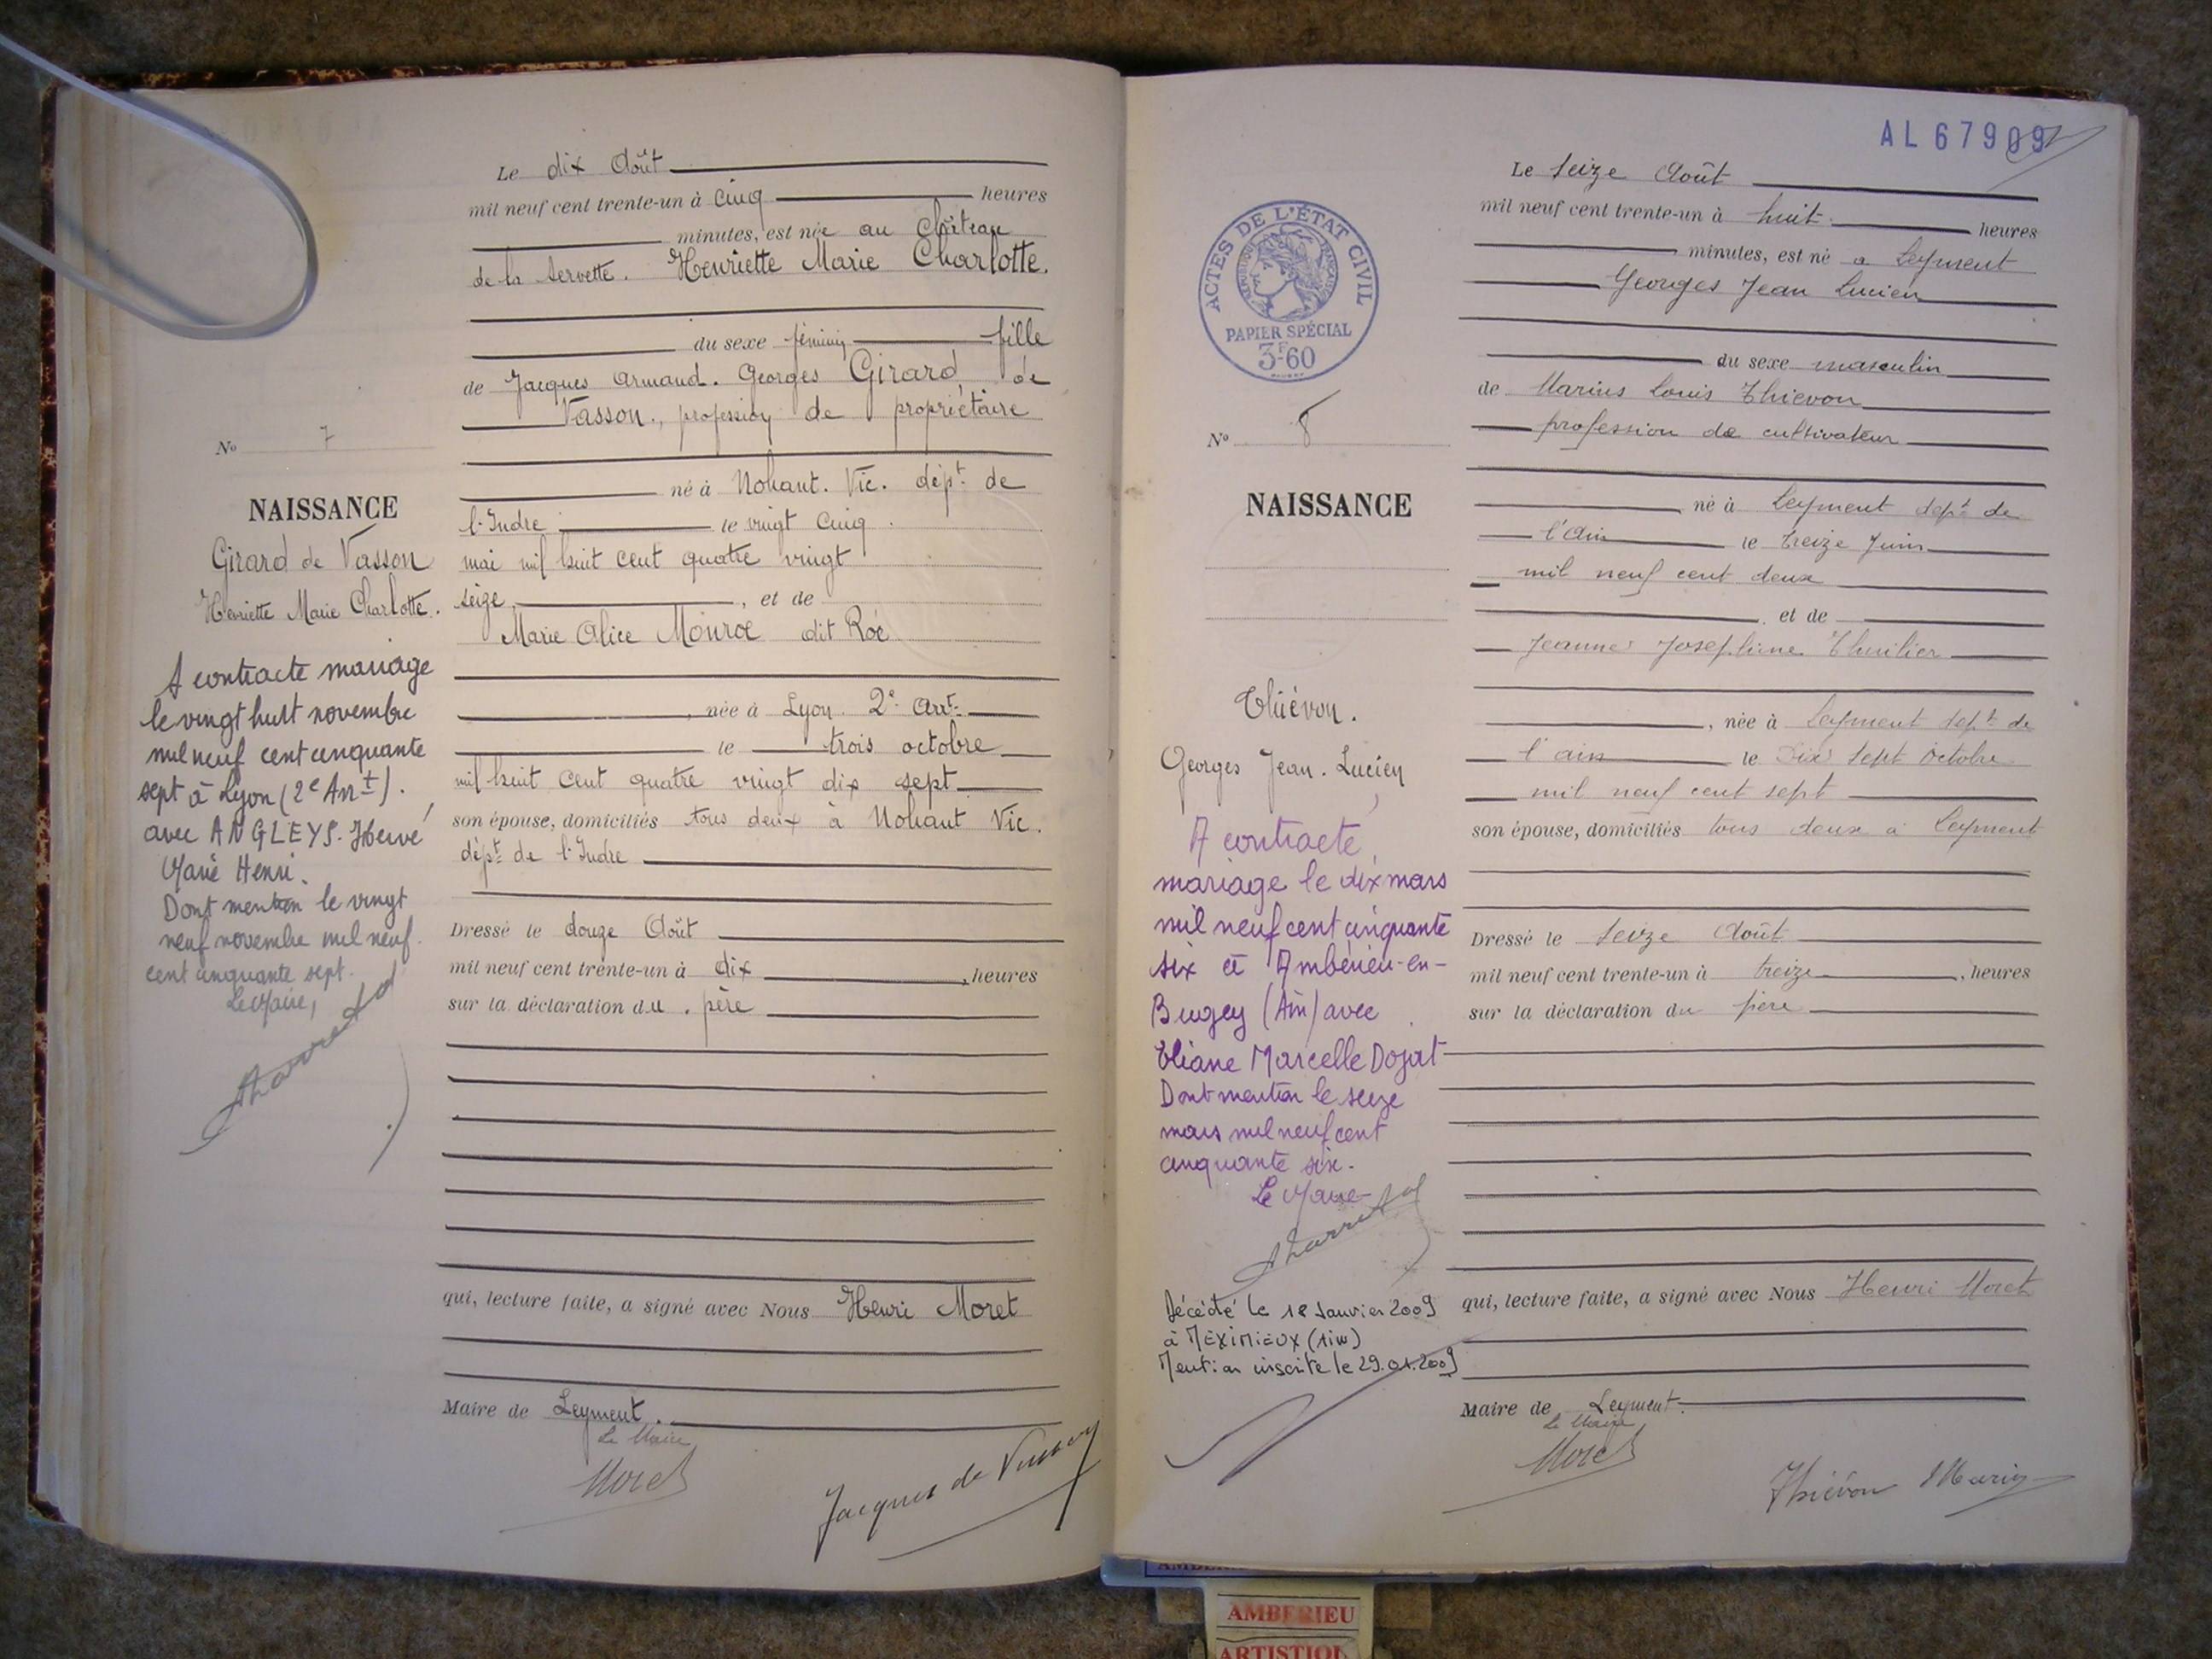 Le dix Août
mil neuf cent trente-un à cinq heures
minutes, est née au Château
de la Servette. Henriette Marie Charlotte.
du sexe féminin fille
de Jacques Armand. Georges Girard de
Vasson., profession de propriétaire
né à Nohant. Vic. dépt de
l'Indre le vingt cinq
mai mil huit cent quatre vingt
seize, et de
Marie Alice Monroe dit Roé
, née à Lyon 2e Arrt
le trois octobre
mil huit cent quatre vingt dix sept
son épouse, domiciliés tous deux à Nohant Vic.
dépt de l'Indre
Dressé le douze Août
mil neuf cent trente-un à dix , heures
sur la déclaration du père
qui, lecture faite, a signé avec Nous Henri Moret
Maire de Leyment.
Le Maire
Moret
Jacques de Vasson
No 7
NAISSANCE
Girard de Vasson
Henriette Marie Charlotte.
A contracte mariage
le vingt huit novembre
mil neuf cent cinquante
sept à Lyon (2e Arrt).
avec ANGLEYS. Hervé
Marie Henri.
Dont mention le vingt
neuf novembre mil neuf
cent cinquante sept.
Le Maire,
AL 67909
Le seize Août
mil neuf cent trente-un à huit heures
minutes, est né a Leyment
Georges Jean Lucien
du sexe masculin
de Marius Louis Thievon
profession de cultivateur
né à Leyment dept de
l'Ain le treize Juin
mil neuf cent deux
, et de
Jeanne Josephine Thuilier
, née à Leyment dept de
l'ain le Dix sept octobre
mil neuf cent sept
son épouse, domiciliés tous deux a Leyment
Dressé le seize Août
mil neuf cent trente-un à treize , heures
sur la déclaration du père
qui, lecture faite, a signé avec Nous Henri Moret
Maire de Leyment.
Le Maire
Moret
Thiévon Marius
ACTES DE L'ÉTAT CIVIL
RÉPUBLIQUE FRANÇAISE
PAPIER SPÉCIAL
3F60
No 8
NAISSANCE
Thiévon.
Georges Jean. Lucien
A contracté
mariage le dix mars
mil neuf cent cinquante
six à Ambérieu-en-
Bugey (Ain) avec
Eliane Marcelle Dojat
Dont mention le seize
mars mil neuf cent
cinquante six.
Le Maire
Décédé le 18 Janvier 2009
à MEXIMIEUX (Ain)
Mention inscrite le 29.01.2009
AMBERIEU
ARTISTIQU